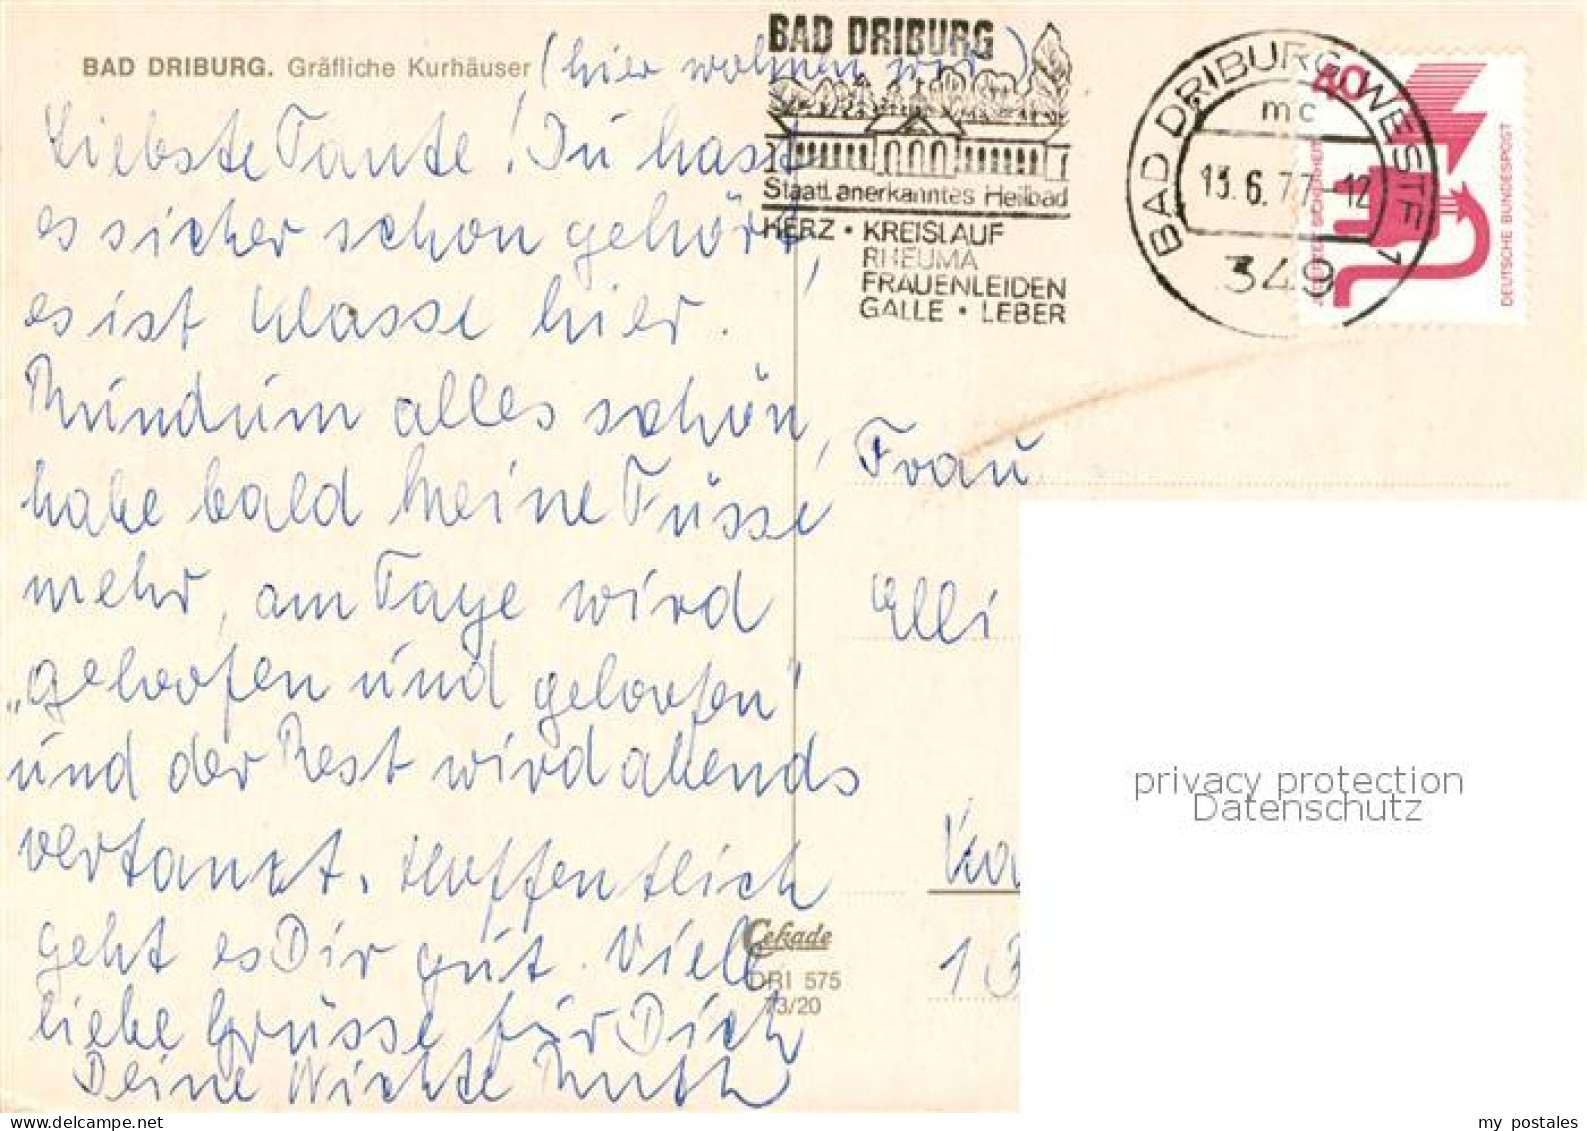 BAD DRIBURG. Gräfliche Kurhäuser (hier wohnen wir)
Liebste Tante! Du hast
es sicher schon gehört,
es ist Klasse hier.
Rundum alles schön,
habe bald keine Füsse
mehr, am Tage wird
„geloofen und geloofen"
und der Rest wird abends
vertanzt. Hoffentlich
geht es Dir gut. Viele
liebe Grüsse für Dich
Deine Nichte Ruth
Cekade
DRI 575
73/20
BAD DRIBURG
Staatl. anerkanntes Heilbad
HERZ • KREISLAUF
RHEUMA
FRAUENLEIDEN
GALLE • LEBER
BAD DRIBURG, WESTF 1
mc
13.6.77-12
349
40
DEUTSCHE BUNDESPOST
Frau
Elli
Ka
13
privacy protection
Datenschutz
my postales